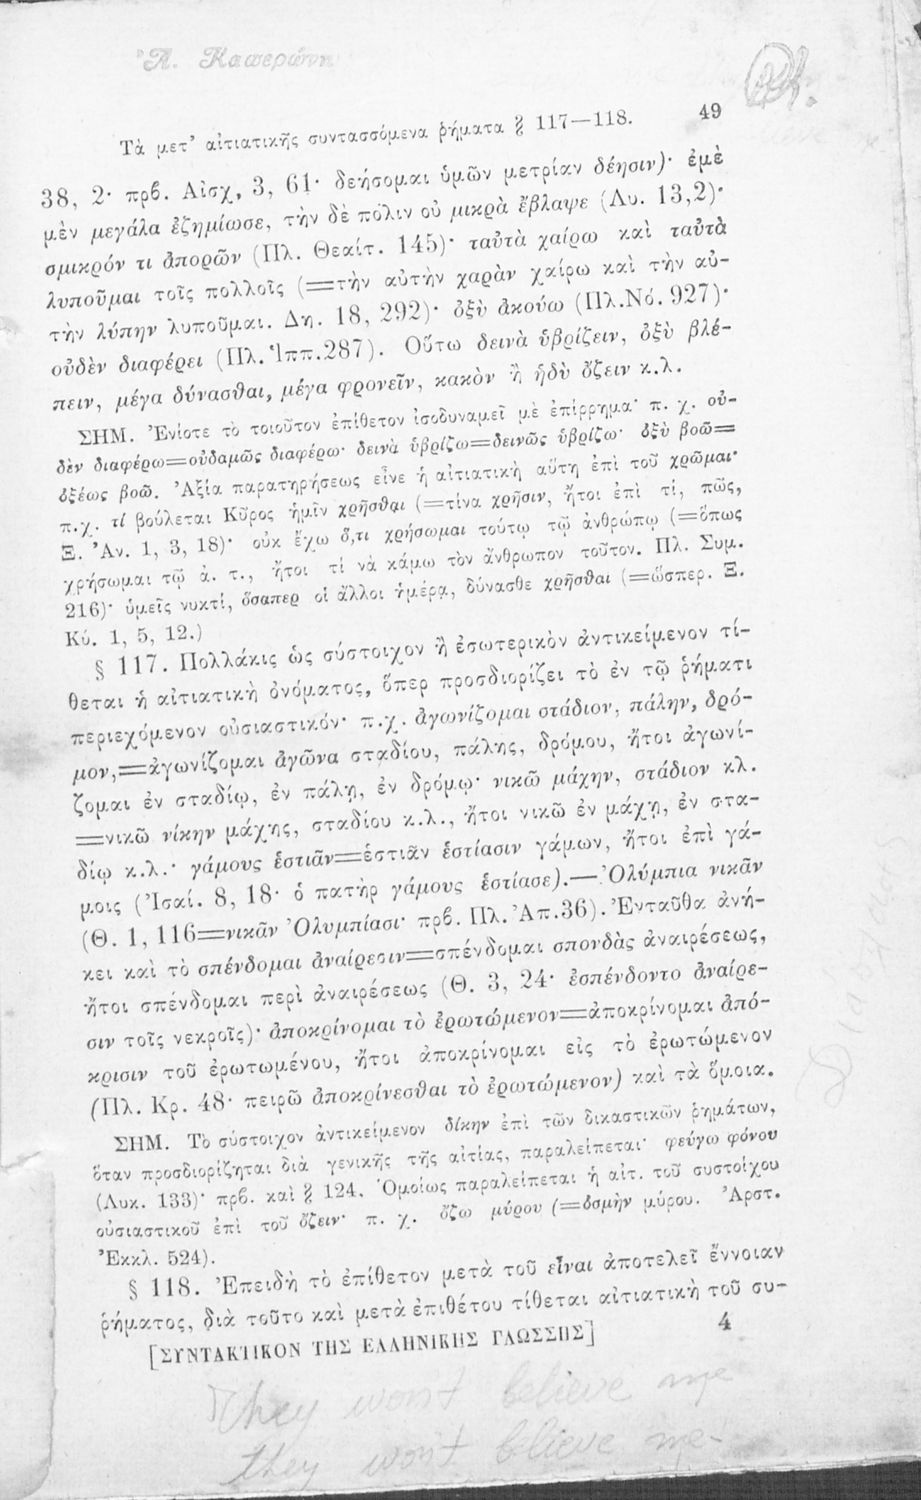 Ἀ. Καπερώνη
49
Τὰ μετ’ αἰτιατικῆς συντασσόμενα ῥήματα § 117—118.
38, 2· πρβ. Αἰσχ, 3, 61· δεήσομαι ὑμῶν μετρίαν δέησιν)· ἐμὲ
μὲν μεγάλα ἐζημίωσε, τὴν δὲ πόλιν οὐ μικρὰ ἔβλαψε (Λυ. 13,2)·
σμικρόν τι ἀπορῶν (Πλ. Θεαίτ. 145)· ταὐτὰ χαίρω καὶ ταὐτὰ
λυποῦμαι τοῖς πολλοῖς (=τὴν αὐτὴν χαρὰν χαίρω καὶ τὴν αὐ-
τὴν λύπην λυποῦμαι. Δη. 18, 292)· ὀξὺ ἀκούω (Πλ.Νό. 927)·
οὐδὲν διαφέρει (Πλ. Ἱππ.287). Οὕτω δεινὰ ὑβρίζειν, ὀξὺ βλέ-
πειν, μέγα δύνασθαι, μέγα φρονεῖν, κακὸν ἢ ἡδὺ ὄζειν κ.λ.
ΣΗΜ. Ἐνίοτε τὸ τοιοῦτον ἐπίθετον ἰσοδυναμεῖ μὲ ἐπίρρημα· π. χ. οὐ-
δὲν διαφέρω=οὐδαμῶς διαφέρω· δεινὰ ὑβρίζω=δεινῶς ὑβρίζω· ὀξὺ βοῶ=
ὀξέως βοῶ. Ἀξία παρατηρήσεως εἶνε ἡ αἰτιατικὴ αὕτη ἐπὶ τοῦ χρῶμαι·
π.χ. τί βούλεται Κῦρος ἡμῖν χρῆσθαι (=τίνα χρῆσιν, ἤτοι ἐπὶ τί, πῶς,
Ξ. Ἀν. 1, 3, 18)· οὐκ ἔχω ὅ,τι χρήσωμαι τούτῳ τῷ ἀνθρώπῳ (=ὅπως
χρήσωμαι τῷ ἀ. τ., ἤτοι τί νὰ κάμω τὸν ἄνθρωπον τοῦτον. Πλ. Συμ.
216)· ὑμεῖς νυκτί, ὅσαπερ οἱ ἄλλοι ἡμέρᾳ, δύνασθε χρῆσθαι (=ὥσπερ. Ξ.
Κύ. 1, 5, 12.)
§ 117. Πολλάκις ὡς σύστοιχον ἢ ἐσωτερικὸν ἀντικείμενον τί-
θεται ἡ αἰτιατικὴ ὀνόματος, ὅπερ προσδιορίζει τὸ ἐν τῷ ῥήματι
περιεχόμενον οὐσιαστικόν· π.χ. ἀγωνίζομαι στάδιον, πάλην, δρό-
μον,=ἀγωνίζομαι ἀγῶνα σταδίου, πάλης, δρόμου, ἤτοι ἀγωνί-
ζομαι ἐν σταδίῳ, ἐν πάλῃ, ἐν δρόμῳ· νικῶ μάχην, στάδιον κλ.
=νικῶ νίκην μάχης, σταδίου κ.λ., ἤτοι νικῶ ἐν μάχῃ, ἐν στα-
δίῳ κ.λ.· γάμους ἑστιᾶν=ἑστιᾶν ἑστίασιν γάμων, ἤτοι ἐπὶ γά-
μοις (Ἰσαί. 8, 18· ὁ πατὴρ γάμους ἑστίασε).— Ὀλύμπια νικᾶν
(Θ. 1, 116=νικᾶν Ὀλυμπίασι· πρβ. Πλ. Ἀπ.36). Ἐνταῦθα ἀνή-
κει καὶ τὸ σπένδομαι ἀναίρεσιν=σπένδομαι σπονδὰς ἀναιρέσεως,
ἤτοι σπένδομαι περὶ ἀναιρέσεως (Θ. 3, 24· ἐσπένδοντο ἀναίρε-
σιν τοῖς νεκροῖς)· ἀποκρίνομαι τὸ ἐρωτώμενον=ἀποκρίνομαι ἀπό-
κρισιν τοῦ ἐρωτωμένου, ἤτοι ἀποκρίνομαι εἰς τὸ ἐρωτώμενον
(Πλ. Κρ. 48· πειρῶ ἀποκρίνεσθαι τὸ ἐρωτώμενον) καὶ τὰ ὅμοια.
ΣΗΜ. Τὸ σύστοιχον ἀντικείμενον δίκην ἐπὶ τῶν δικαστικῶν ῥημάτων,
ὅταν προσδιορίζηται διὰ γενικῆς τῆς αἰτίας, παραλείπεται· φεύγω φόνου
(Λυκ. 133)· πρβ. καὶ § 124. Ὁμοίως παραλείπεται ἡ αἰτ. τοῦ συστοίχου
οὐσιαστικοῦ ἐπὶ τοῦ ὄζειν· π. χ. ὄζω μύρου (=ὀσμὴν μύρου. Ἀρστ.
Ἐκκλ. 524).
§ 118. Ἐπειδὴ τὸ ἐπίθετον μετὰ τοῦ εἶναι ἀποτελεῖ ἔννοιαν
ῥήματος, διὰ τοῦτο καὶ μετὰ ἐπιθέτου τίθεται αἰτιατικὴ τοῦ συ-
[ΣΥΝΤΑΚΤΙΚΟΝ ΤΗΣ ΕΛΛΗΝΙΚΗΣ ΓΛΩΣΣΗΣ]
4
They won't believe me
they won't believe me-